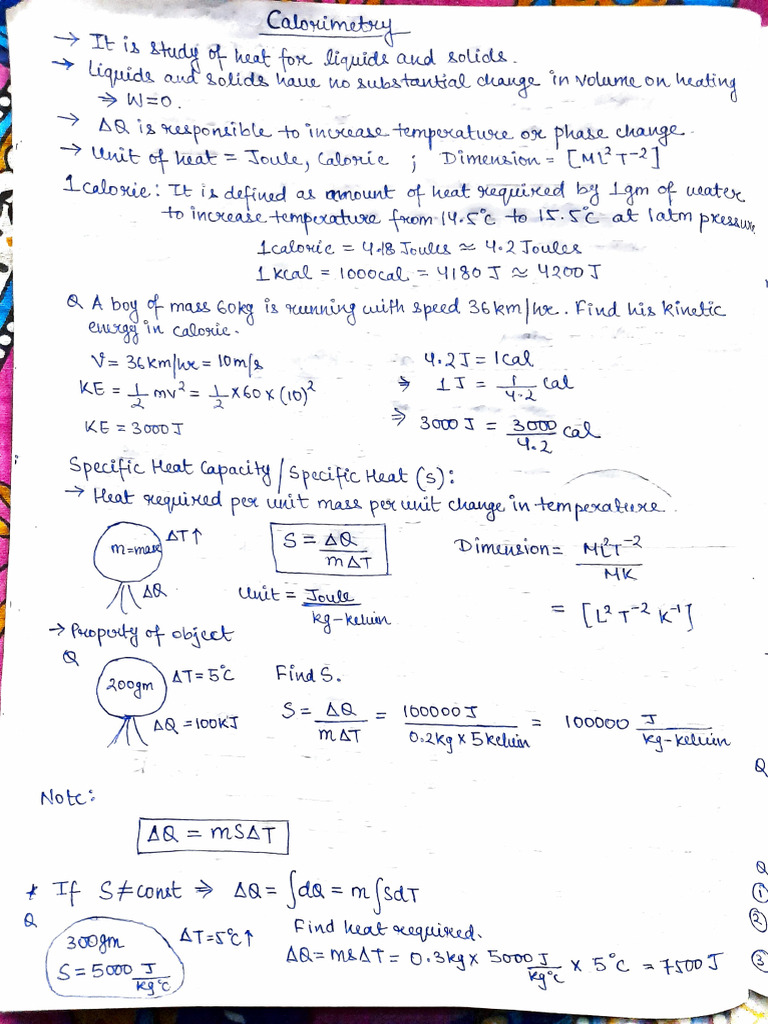 Calorimetry
→ It is study of heat for liquids and solids.
→ Liquids and solids have no substantial change in volume on heating
⇒ W=0.
→ ΔQ is responsible to increase temperature or phase change.
→ Unit of heat = Joule, Calorie ; Dimension = [ML²T⁻²]
1 calorie: It is defined as amount of heat required by 1gm of water
to increase temperature from 14.5°c to 15.5°c at 1atm pressure
1calorie = 4.18 Joules ≈ 4.2 Joules
1 kcal = 1000cal = 4180 J ≈ 4200 J
Q A boy of mass 60kg is running with speed 36km/hr. Find his kinetic
energy in calorie.
V = 36km/hr = 10m/s
KE = 1/2 mv² = 1/2 × 60 × (10)²
KE = 3000 J
4.2 J = 1 Cal
⇒ 1 J = 1/4.2 Cal
⇒ 3000 J = 3000/4.2 Cal
Specific Heat Capacity / Specific Heat (s):
→ Heat required per unit mass per unit change in temperature.
m=mass ΔT↑
ΔQ
S = ΔQ/mΔT
Unit = Joule/kg-kelvin
Dimension = ML²T⁻²/MK
= [L² T⁻² K⁻¹]
→ Property of object
Q
200gm ΔT = 5°C Find S.
ΔQ = 100KJ
S = ΔQ/mΔT = 100000 J/0.2kg × 5 Kelvin = 100000 J/kg-kelvin
Q
Note:
ΔQ = mSΔT
* If S≠const ⇒ ΔQ = ∫dQ = m∫SdT
Q
Q
①
②
③
300gm
S = 5000 J/kg°c
ΔT=5°C↑
Find heat required.
ΔQ = msΔT = 0.3kg × 5000 J/kg°c × 5°C = 7500 J